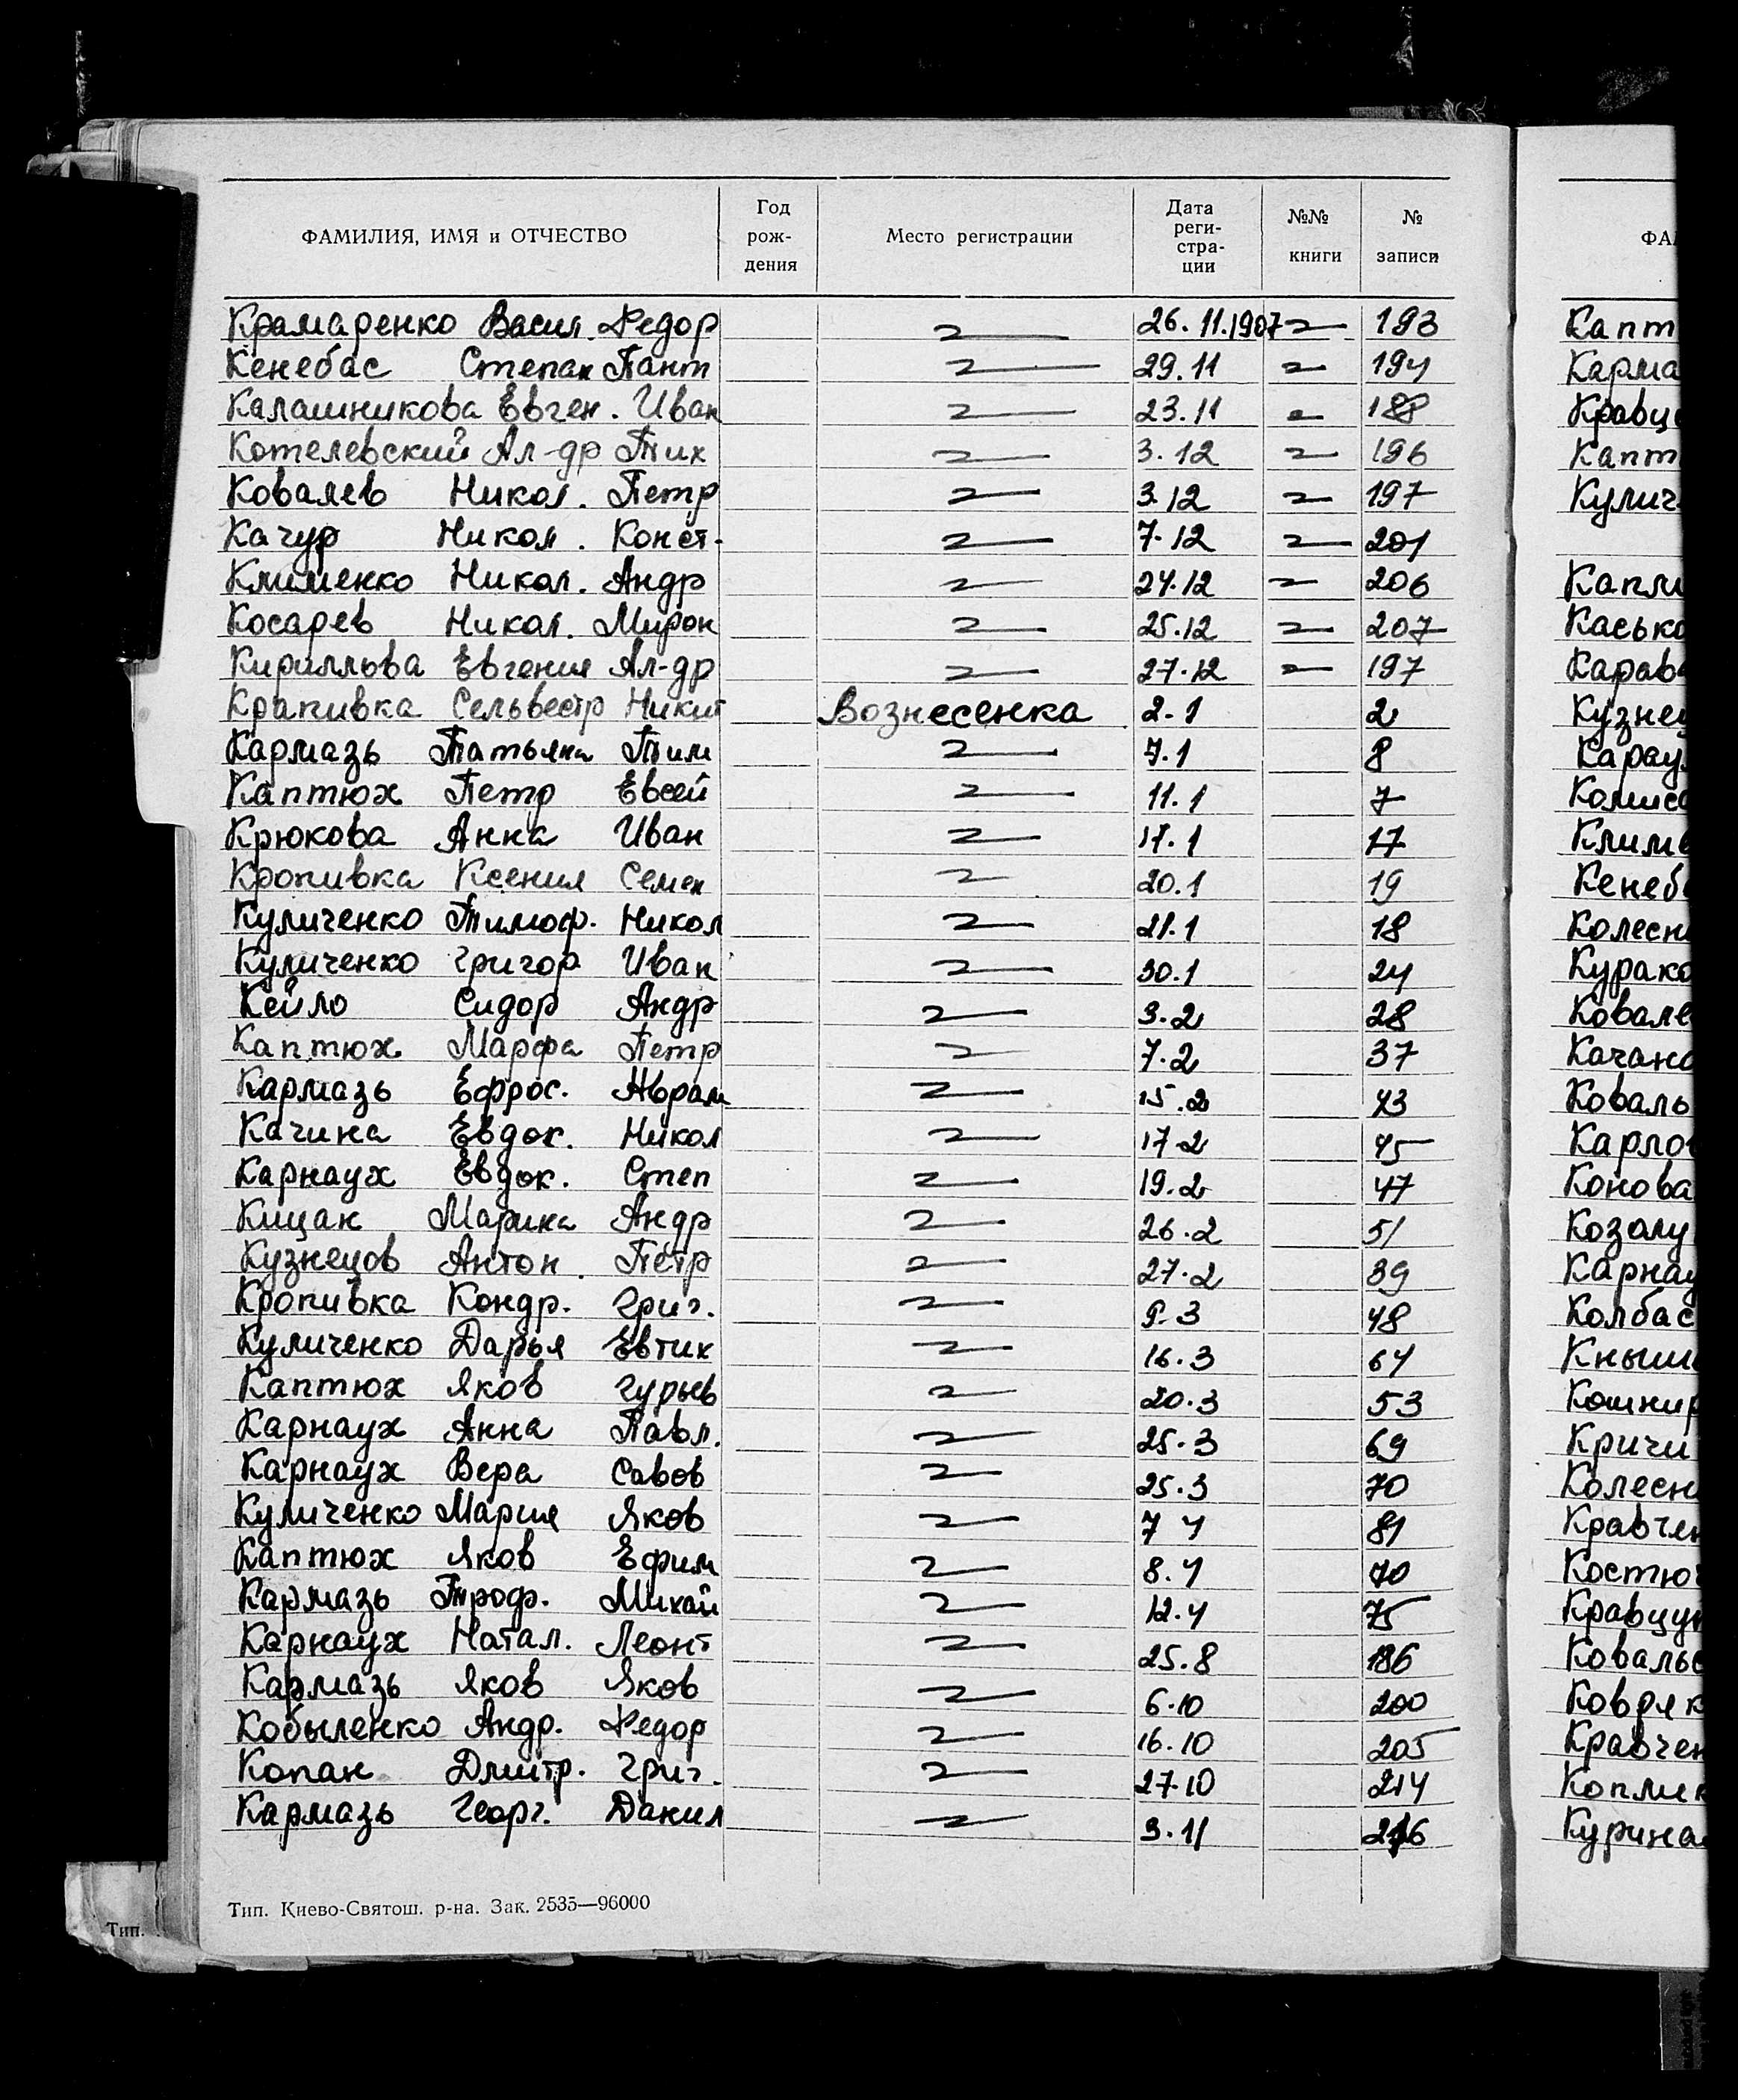 ФАМИЛИЯ, ИМЯ и ОТЧЕСТВО Год рождения Место регистрации Дата регистрации №№ книги № записи
Крамаренко Васил. Федор 26.11.1907 193
Кенебас Степан Пант 29.11 194
Калашникова Евген. Иван 23.11 188
Котелевский Ал-др Тих 3.12 196
Ковалев Никол. Петр 3.12 197
Качур Никол. Конст. 7.12 201
Клименко Никол. Андр 24.12 206
Косарев Никол. Мирон 25.12 207
Кирилльва Евгения Ал-др 27.12 197
Крапивка Сельвестр Никит Вознесенка 2.1 2
Кармазь Татьяна Тим 7.1 8
Каптюх Петр Евсей 11.1 7
Крюкова Анна Иван 17.1 17
Кропивка Ксения Семен 20.1 19
Куличенко Тимоф. Никол 21.1 18
Куличенко Григор Иван 30.1 24
Кейло Сидор Андр 3.2 28
Каптюх Марфа Петр 7.2 37
Кармазь Ефрос. Аврам 15.2 43
Качина Евдок. Никол 17.2 45
Карнаух Евдок. Степ 19.2 47
Кицак Марина Андр 26.2 51
Кузнецов Антон. Петр 27.2 39
Кропивка Кондр. Григ. 9.3 48
Куличенко Дарья Евтих 16.3 64
Каптюх Яков Гурьев 20.3 53
Карнаух Анна Павл. 25.3 69
Карнаух Вера Савов 25.3 70
Куличенко Мария Яков 7 4 81
Каптюх Яков Ефим 8.4 70
Кармазь Троф. Михай 12.4 75
Карнаух Натал. Леонт 25.8 186
Кармазь Яков Яков 6.10 200
Кобыленко Андр. Федор 16.10 205
Копан Дмитр. Григ. 27.10 214
Кармазь Георг. Данил 3.11 216
Тип. Киево-Святош. р-на. Зак. 2535—96000
Тип.